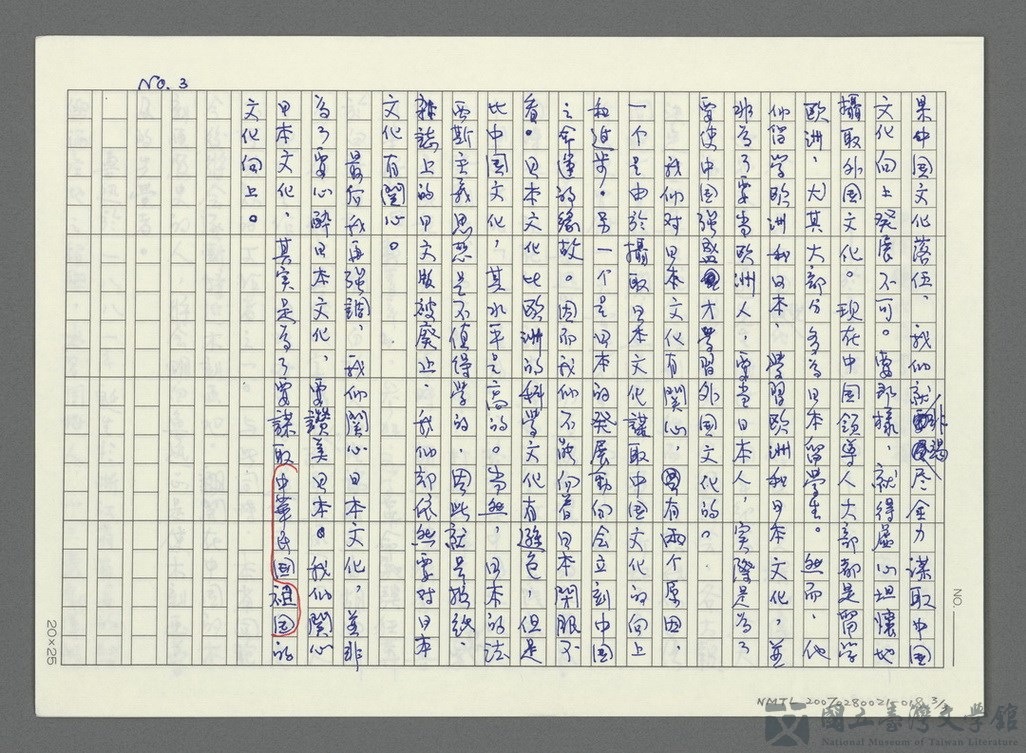 NO. 3
果中国文化落伍、我们就非竭尽全力謀取中国
文化向上発展不可。要那樣、就得虚心坦懐地
攝取外国文化。現在中国領導人大部都是留学
欧洲、尤其大部分多為日本留学生。然而、他
们留学欧洲和日本、學習欧洲和日本文化，並
非為了要当欧洲人，要当日本人，实際是為了
要使中国强盛才學習外国文化的。
我们对日本文化有関心，有两个原因，
一个是由於攝取日本文化謀取中国文化的向上
和進步。另一个是日本的発展動向会立刻中国
之命運的缘故。因而我们不能向着日本閉眼不
看。日本文化比欧洲的科學文化有遜色，但是
比中国文化，其水平是高的。当然，日本的法
西斯主義思想是不值得學的．因此就是報紙、
雜誌上的日文版被廃止．我们却依然要对日本
文化有関心。
最后我再强調，我们関心日本文化，並非
為了要心醉日本文化，要讃美日本。我们関心
日本文化，其实是為了要謀取中華民国祖国的
文化向上。
NO.
20×25
NMTL 20070280021-018 3/
國立臺灣文學館
National Museum of Taiwan Literature